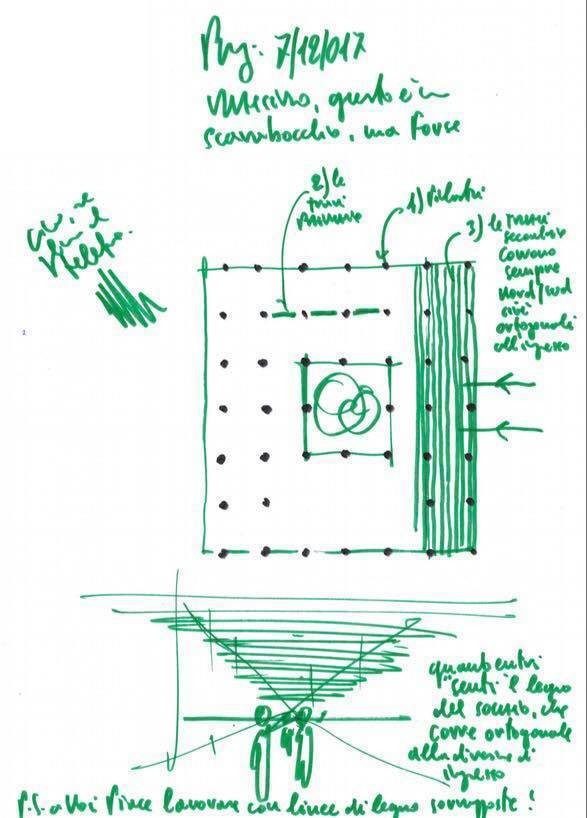 7/12/017
questo è un
scarabocchio, ma forse
2) le
travi
primarie
1) Pilastri
3) le travi
secondarie
corrono
sempre
Nord/Sud
cioè
ortogonali
all'ingresso
quando entri
"senti" il legno
del
corre ortogonale
alla direzione di
ingresso
P.S. a Voi piace lavorare con linee di legno sovrapposte!